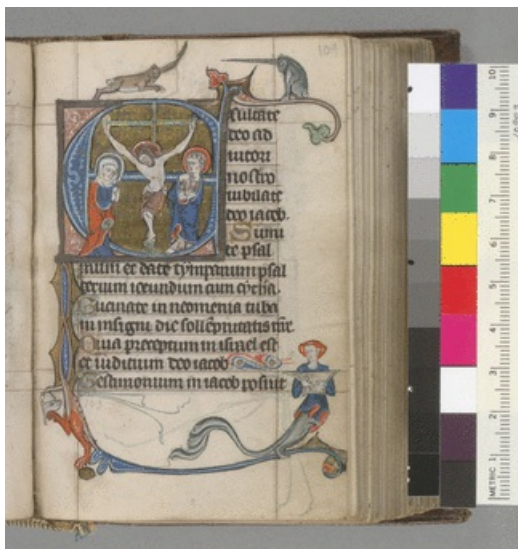 104
xultate
deo ad
iutori
nostro
iubilate
deo iacob.
Sumi
te psal
mum et date tympanum psal
terium iocundum cum cythã.
Bucinate in neomenia tuba
in insigni die sollempnitatis
Quia preceptum in israel est
et iuditium deo iacob
Testimonium in iacob posuit
METRIC 1 2 3 4 5 6 7 8 9 10